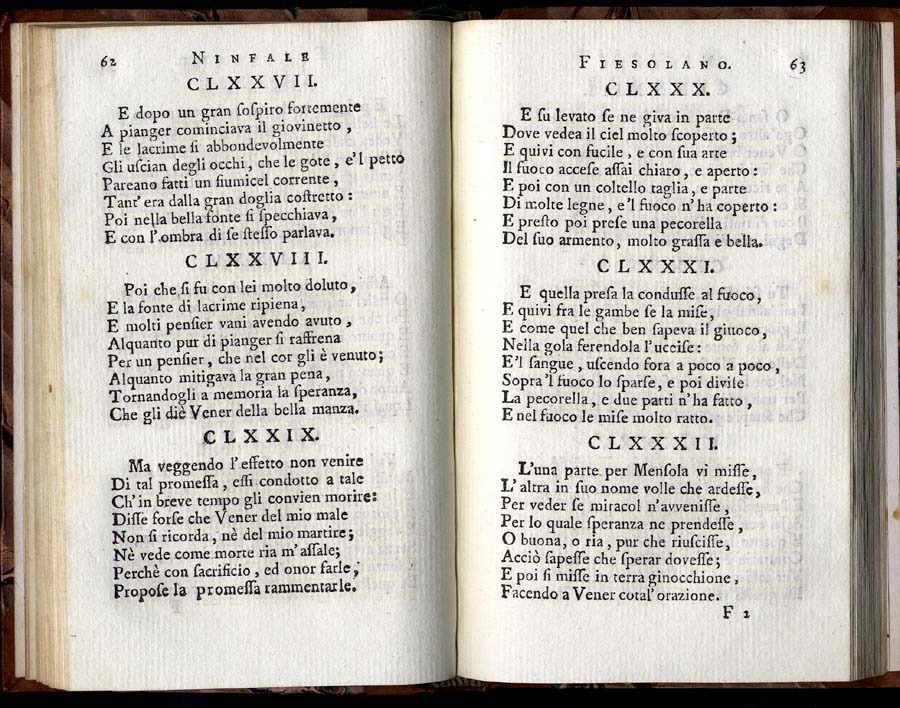 62 NINFALE
CLXXVII.
E dopo un gran ſoſpiro fortemente
A pianger cominciava il giovinetto,
E le lacrime ſi abbondevolmente
Gli uſcian degli occhi, che le gote, e'l petto
Pareano fatti un fiumicel corrente,
Tant' era dalla gran doglia coſtretto:
Poi nella bella fonte ſi ſpecchiava,
E con l'ombra di ſe ſteſſo parlava.
CLXXVIII.
Poi che ſi fu con lei molto doluto,
E la fonte di lacrime ripiena,
E molti penſier vani avendo avuto,
Alquanto pur di pianger ſi raffrena
Per un penſier, che nel cor gli è venuto;
Alquanto mitigava la gran pena,
Tornandogli a memoria la ſperanza,
Che gli diè Vener della bella manza.
CLXXIX.
Ma veggendo l'effetto non venire
Di tal promeſſa, eſſi condotto a tale
Ch'in breve tempo gli convien morire:
Diſſe forſe che Vener del mio male
Non ſi ricorda, nè del mio martire;
Nè vede come morte ria m'aſſale;
Perchè con ſacrificio, ed onor farle,
Propoſe la promeſſa rammentarle.
FIESOLANO. 63
CLXXX.
E ſu levato ſe ne giva in parte
Dove vedea il ciel molto ſcoperto;
E quivi con fucile, e con ſua arte
Il fuoco acceſe aſſai chiaro, e aperto:
E poi con un coltello taglia, e parte
Di molte legne, e'l fuoco n'ha coperto:
E preſto poi preſe una pecorella
Del ſuo armento, molto graſſa e bella.
CLXXXI.
E quella preſa la conduſſe al fuoco,
E quivi fra le gambe ſe la miſe,
E come quel che ben ſapeva il giuoco,
Nella gola ferendola l'ucciſe:
E'l ſangue, uſcendo fora a poco a poco,
Sopra'l fuoco lo ſparſe, e poi diviſe
La pecorella, e due parti n'ha fatto,
E nel fuoco le miſe molto ratto.
CLXXXII.
L'una parte per Menſola vi miſſe,
L'altra in ſuo nome volle che ardeſſe,
Per veder ſe miracol n'avveniſſe,
Per lo quale ſperanza ne prendeſſe,
O buona, o ria, pur che riuſciſſe,
Acciò ſapeſſe che ſperar doveſſe;
E poi ſi miſſe in terra ginocchione,
Facendo a Vener cotal' orazione.
F 2